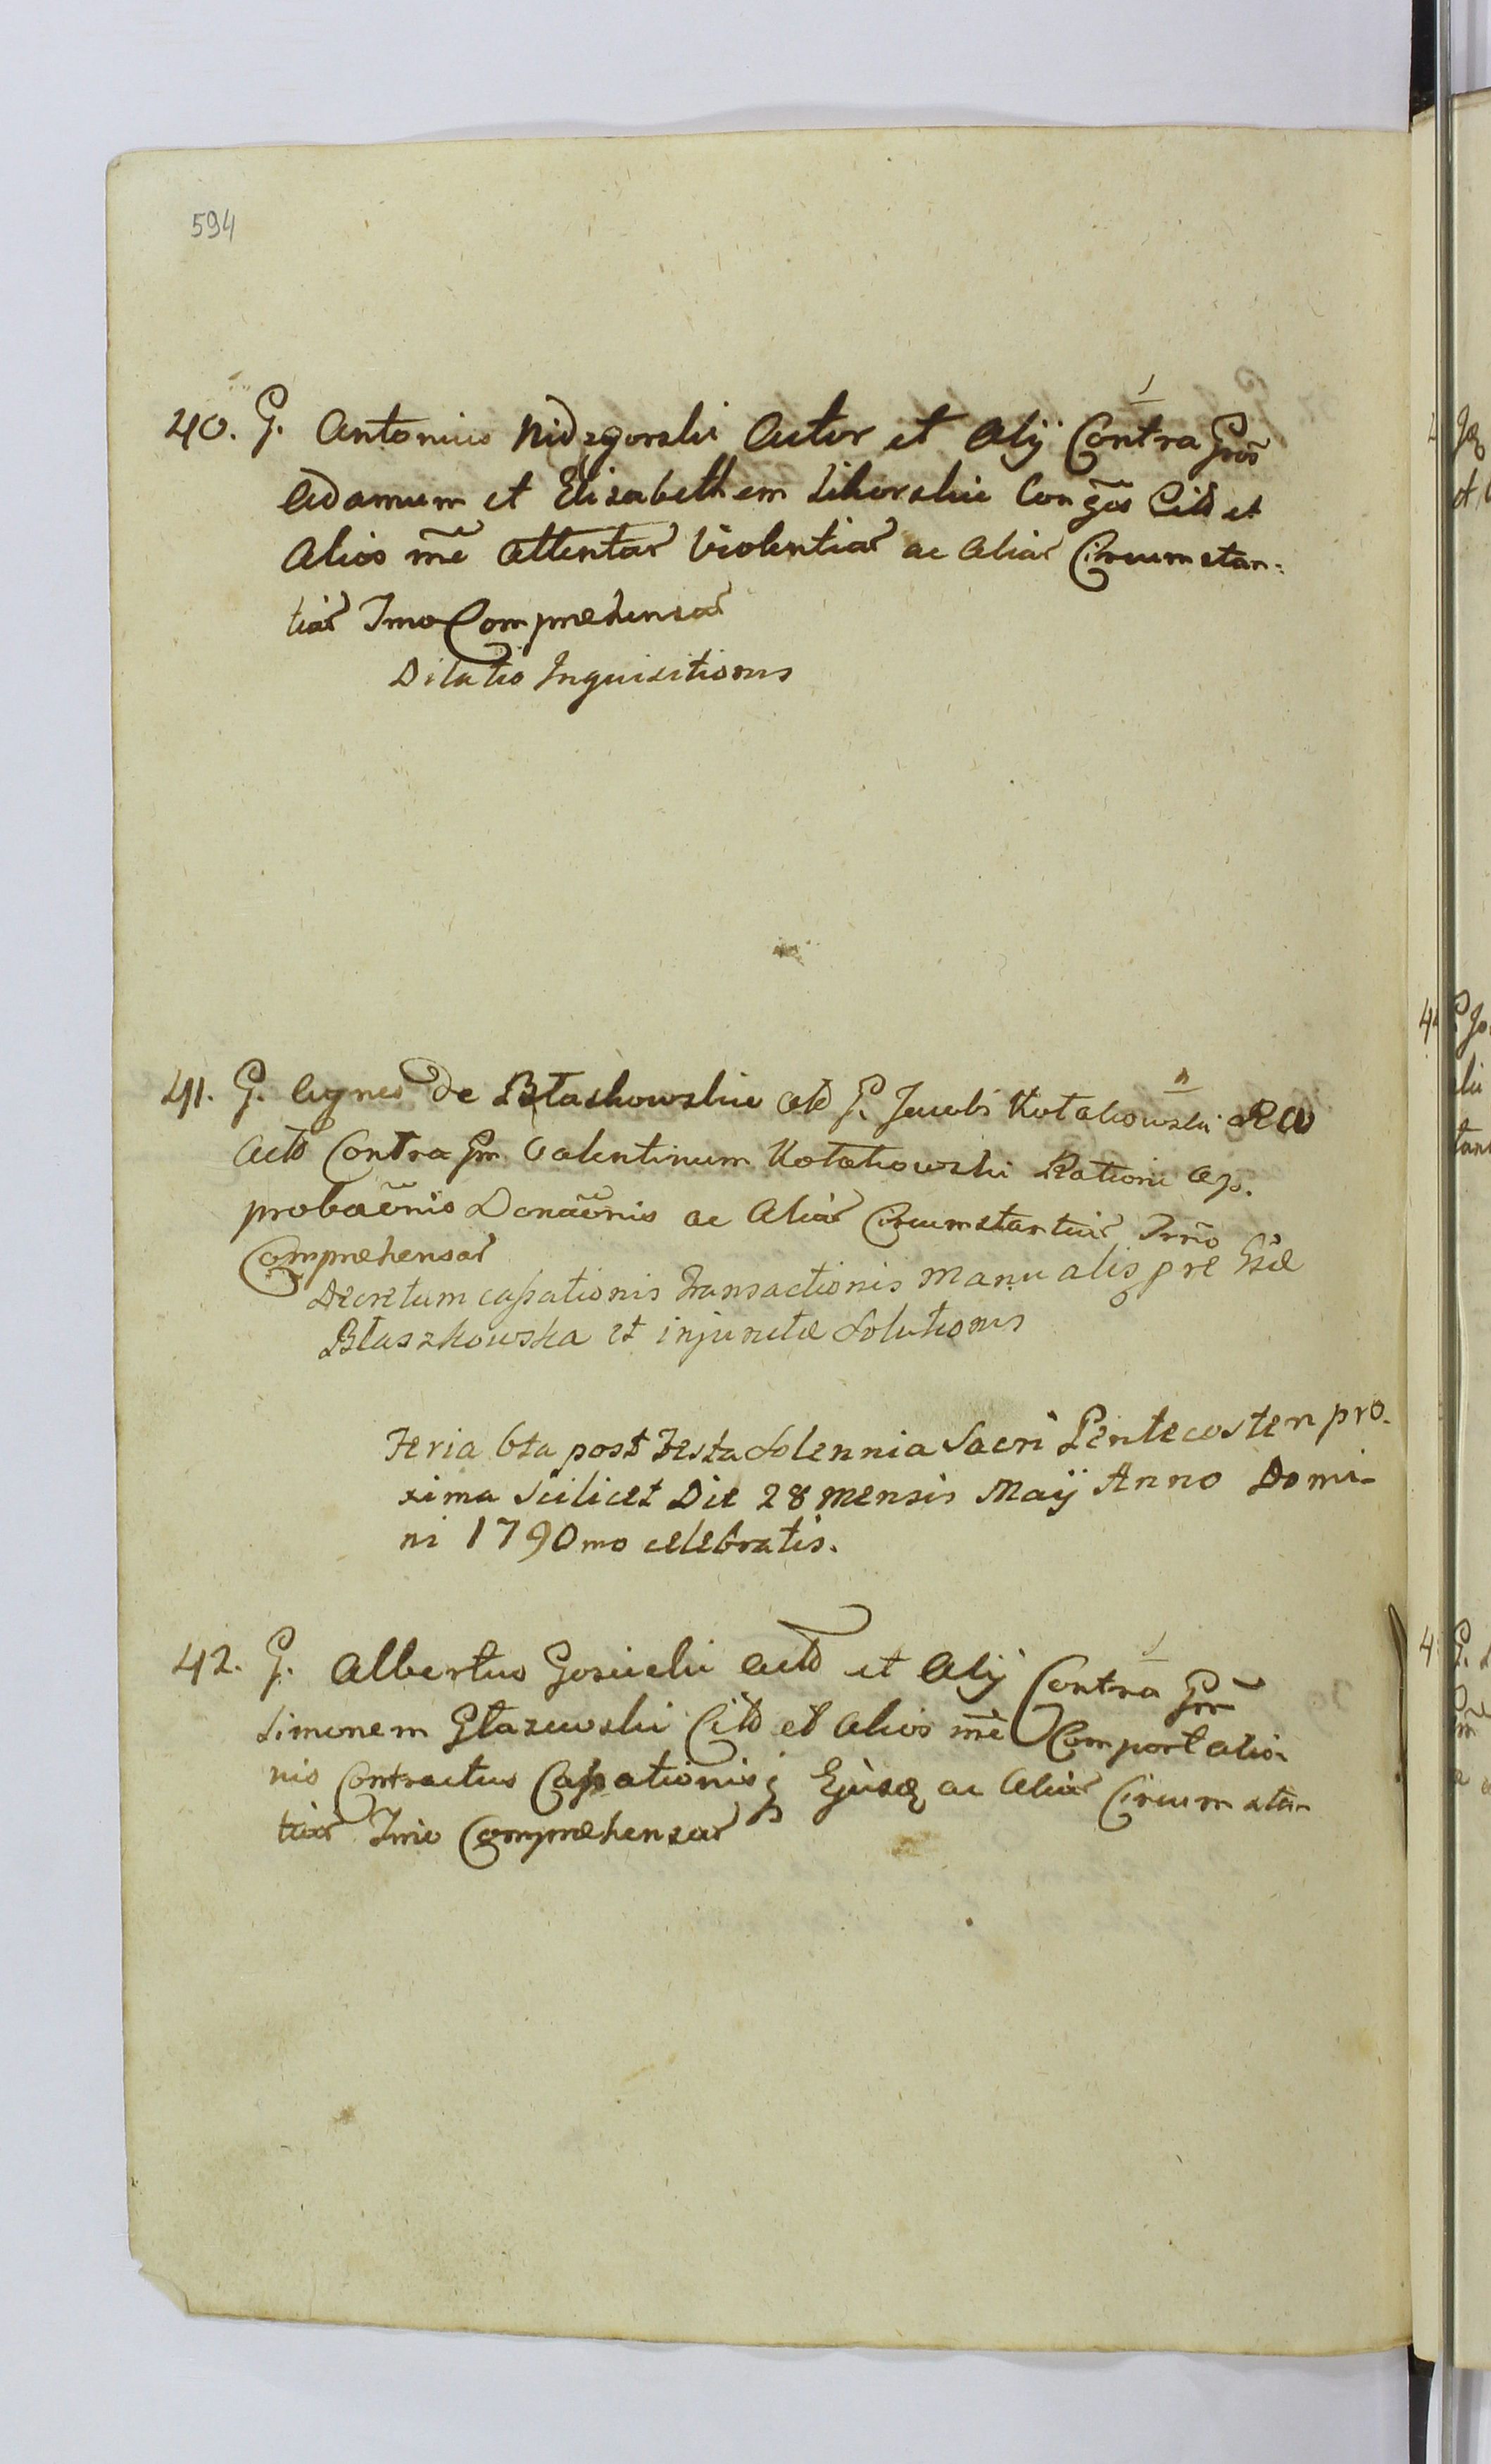 594
40. G. Antonius Nidzgorski Actor et Alij Contra Gros
Adamum et Elisabethem Sikorskie Conges Citt et
Alios rne Attentar Violentiar ac Aliar Circumstan:
tiar Inno Comprehensar
Dilatio Inquisitionis
41. G. Agnes de Błaskowskie G. Jacobi Kołakowski
Actt Contra Gm Valentinum Kołakowski Ratione Ap.
probaonis Donaonis ac Aliar Circumstantiar Inno
Comprehensar
Decretum cassationis Transactionis Manualis pre Gsæ
Błaszkowska et injunctæ Solutionis
Feria 6ta post Festa Solennia Sacri Pentecosten pro.
xima Scilicet Die 28 Mensis Maij Anno Domi-
ni 1790mo celebratis.
42. G. Albertus Gosicki Actt et Alij Contra Gm
Simonem Głazewski Citt et Alios rne Comportatio
nis Contractus Cassationisq Ejusq ac Aliar Circumstan
tiar Inno Comprehensar